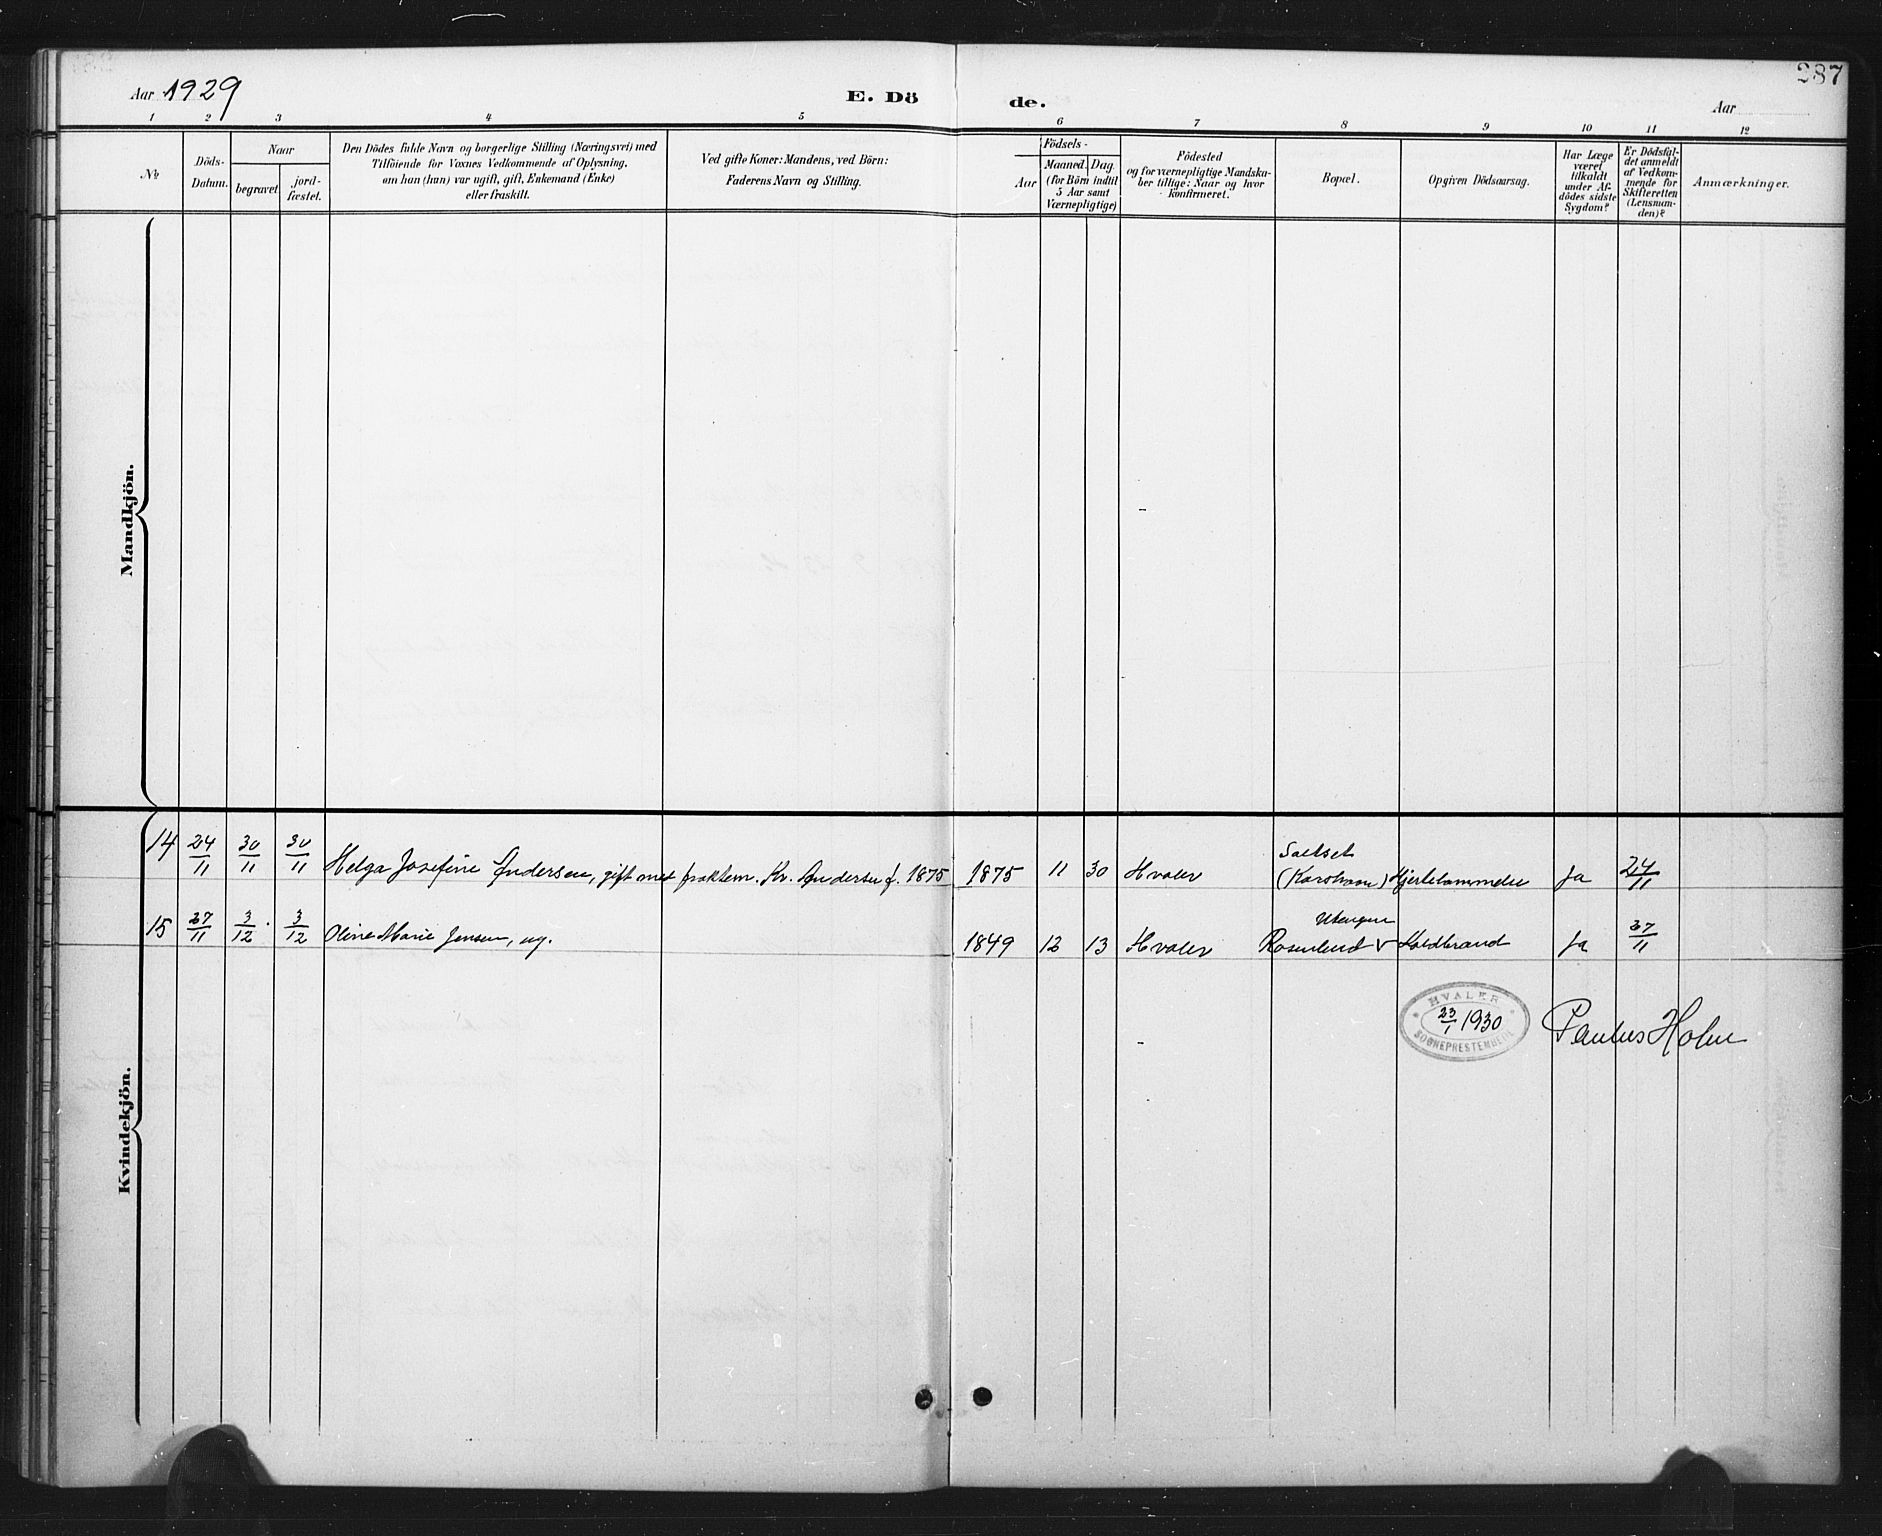 287
Aar 1929
E. Dö
de.
Aar
1 2 3 4 5 6 7 8 9 10 11 12
№
Döds-
Datum.
Naar
begravet
jord-
fæstet.
Den Dödes fulde Navn og borgerlige Stilling (Næringsvei) med
Tilföiende for Voxnes Vedkommende af Oplysning,
om han (hun) var ugift, gift, Enkemand (Enke)
eller fraskilt.
Ved gifte Koner: Mandens, ved Börn:
Faderens Navn og Stilling.
Födsels-
Aar
Maaned.
Dag.
(for Börn indtil
5 Aar samt
Værnepligtige)
Födested
og for værnepligtige Mandska-
ber tillige: Naar og hvor
konfirmeret.
Bopæl.
Opgiven Dödsaarsag.
Har Læge
været
tilkaldt
under Af-
dödes sidste
Sygdom?
Er Dödsfal-
det anmeldt
af Vedkom-
mende for
Skifteretten
(Lensman-
den)?
Anmærkninger.
Mandkjön.
Kvindekjön.
14 24/11 30/11 30/11 Helga Josefine Andersen, gift med Kr. Andersen f. 1875 1875 11 30 Hvaler (Karshavn) Ja 24/11
15 27/11 3/12 3/12 Oline Marie Jensen, ug. 1849 12 13 Hvaler Rosenlund Koldbrand Ja 27/11
Utengen
HVALER
23/1 1930
SOGNEPRESTEMBEDE
Paulus Holm